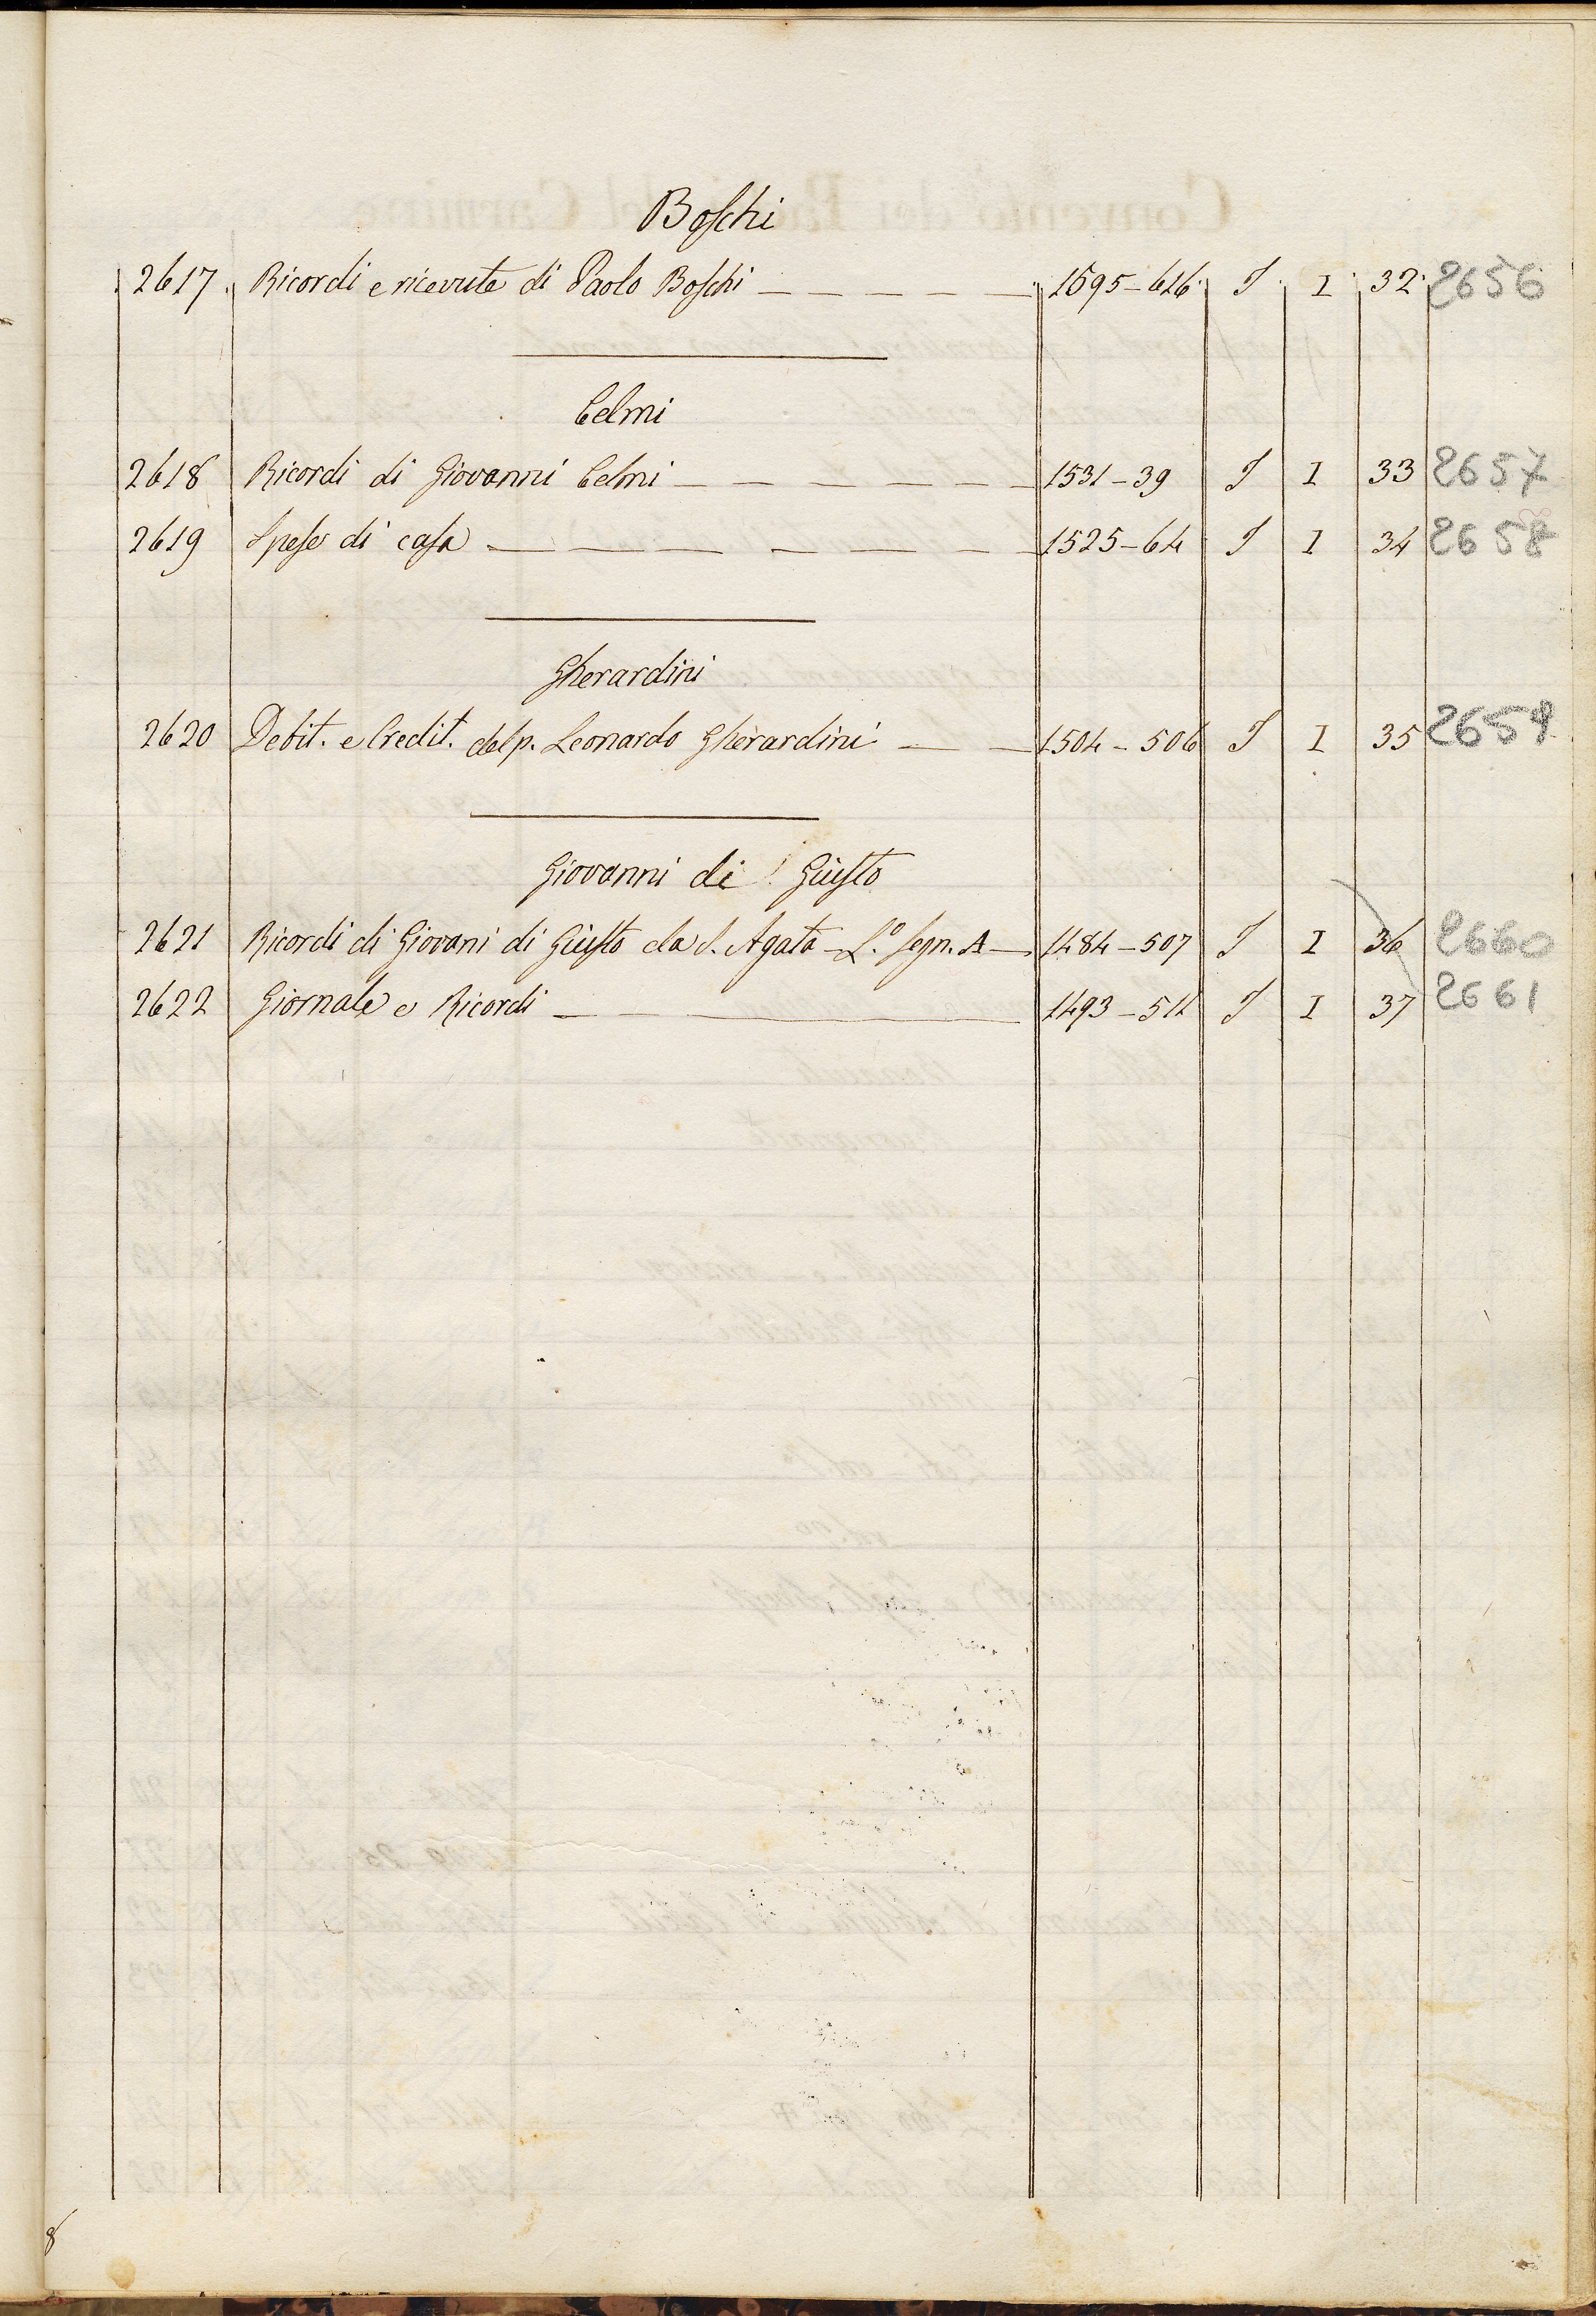 Boschi
2617. Ricordi e ricevute di Paolo Boschi 1595-616 S I 32 2656
Celmi
2618 Ricordi di Giovanni Celmi 1531-39 S I 33 2657
2619 Spese di casa 1525-64 S I 34 2658
Gherardini
2620 Debit. e Credit. del p. Leonardo Gherardini 1504-506 S I 35 2659
Giovanni di Giusto
2621 Ricordi di Giovani di Giusto da S. Agata - L.º segn. A 1484-507 S I 36 2660
2622 Giornale e Ricordi 1493-511 S I 37 2661
8